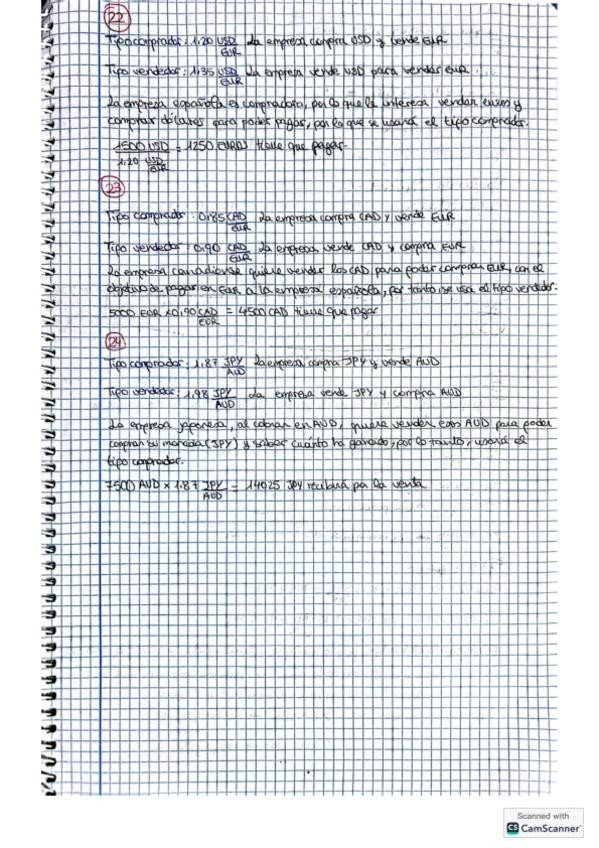 22
Tipo comprador: 1.20 USD/EUR La empresa compra USD y vende EUR
Tipo vendedor: 1.35 USD/EUR La empresa vende USD para vender EUR
La empresa española es compradora, por lo que le interesa vender euros y
comprar dólares para poder pagar, por lo que se usará el tipo comprador.
1500 USD / 1.20 USD/EUR = 1250 EUROS tiene que pagar.
23
Tipo comprador: 0.85 CAD/EUR La empresa compra CAD y vende EUR
Tipo vendedor: 0.90 CAD/EUR La empresa vende CAD y compra EUR
La empresa canadiense quiere vender los CAD para poder comprar EUR, con el
objetivo de pagar en EUR a la empresa española, por tanto, se usa el tipo vendedor.
5000 EUR x 0.90 CAD/EUR = 4500 CAD tiene que pagar
24
Tipo comprador: 1.87 JPY/AUD La empresa compra JPY y vende AUD
Tipo vendedor: 1.98 JPY/AUD La empresa vende JPY y compra AUD
La empresa japonesa, al cobrar en AUD, quiere vender esos AUD para poder
comprar su moneda (JPY) y saber cuánto ha ganado, por lo tanto, usará el
tipo comprador.
7500 AUD x 1.87 JPY/AUD = 14025 JPY recibirá por la venta
Scanned with
CS CamScanner